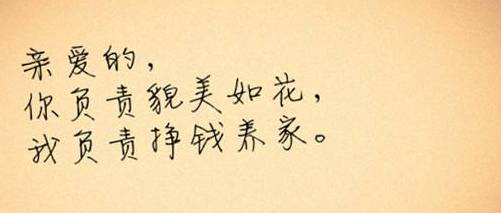 亲爱的，
你负责貌美如花，
我负责挣钱养家。